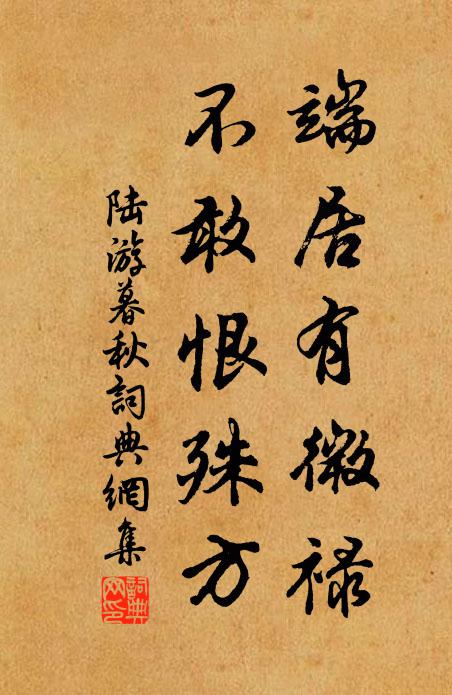 端居有微禄
不敢恨殊方
陆游暮秋詞典網集
詞典网印